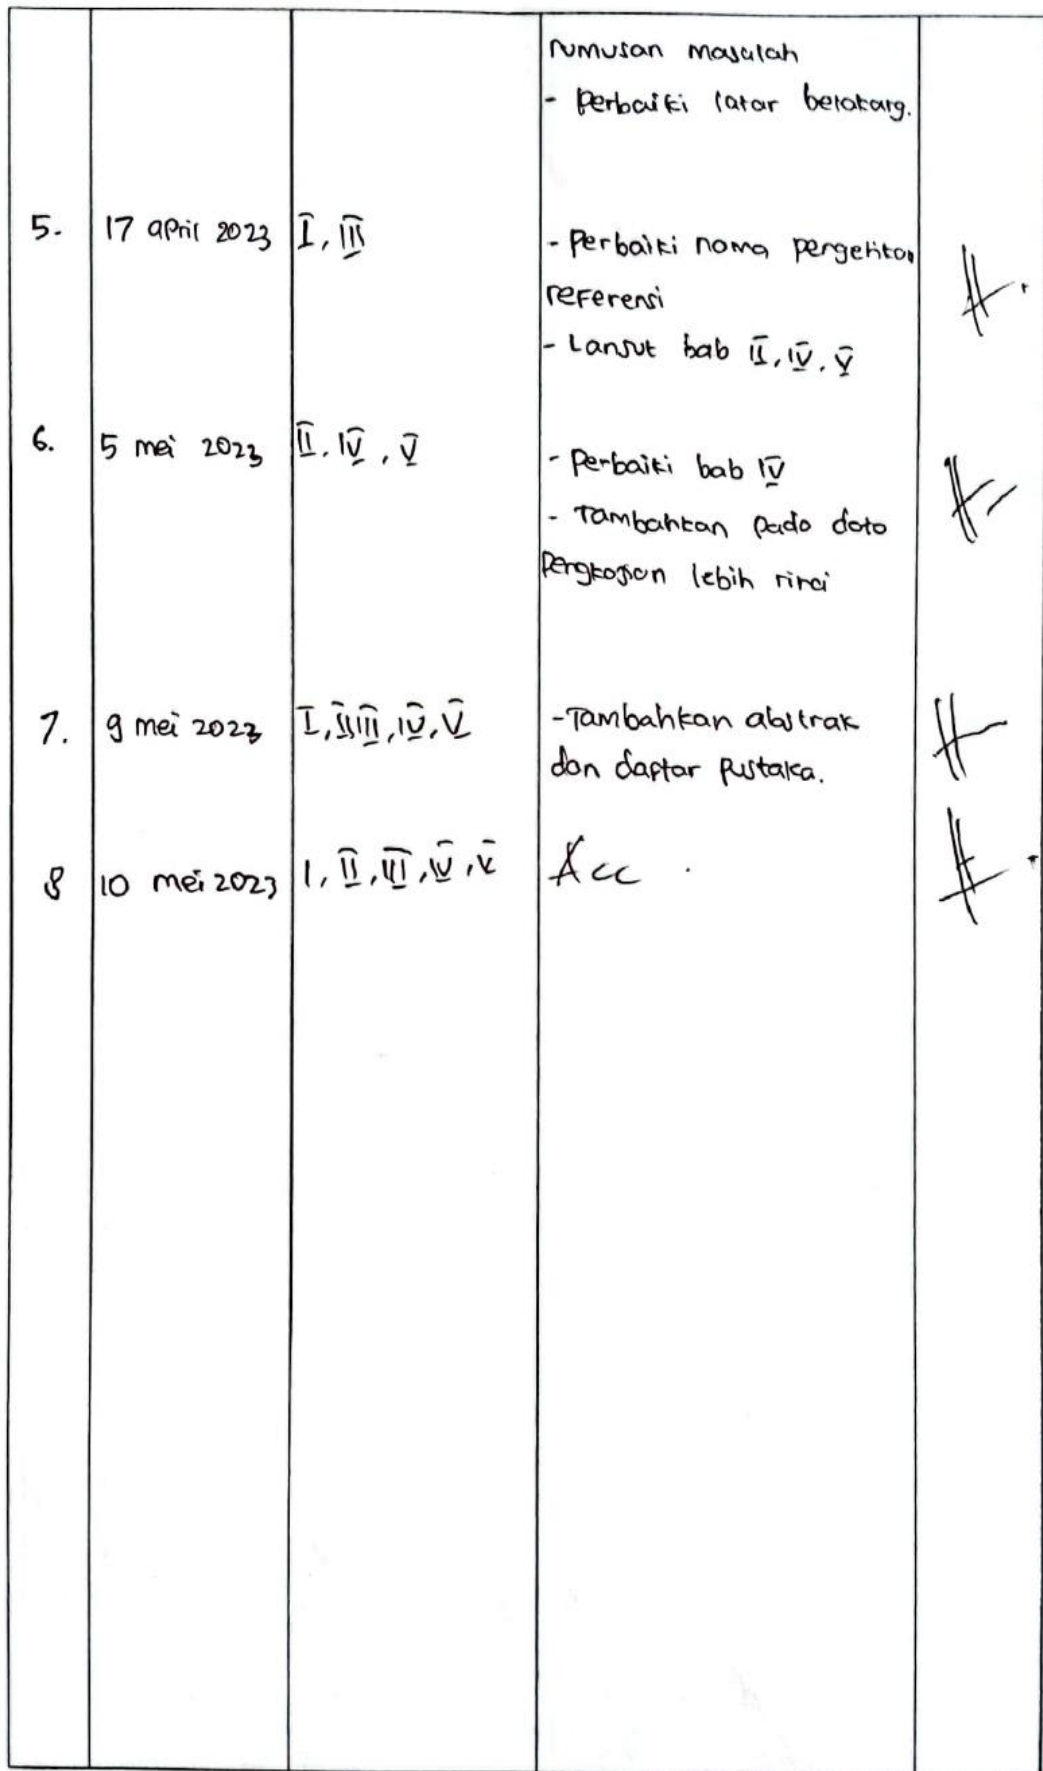 rumusan masalah
- Perbaiki latar belakang.
5. 17 april 2023 I, III - Perbaiki nama pengetikan
referensi
- Lanjut bab II, IV, V
6. 5 mei 2023 II, IV, V - Perbaiki bab IV
- Tambahkan pada data
pengkajian lebih rinci
7. 9 mei 2023 I, II, III, IV, V - Tambahkan abstrak
dan daftar pustaka.
8 10 mei 2023 I, II, III, IV, V Acc